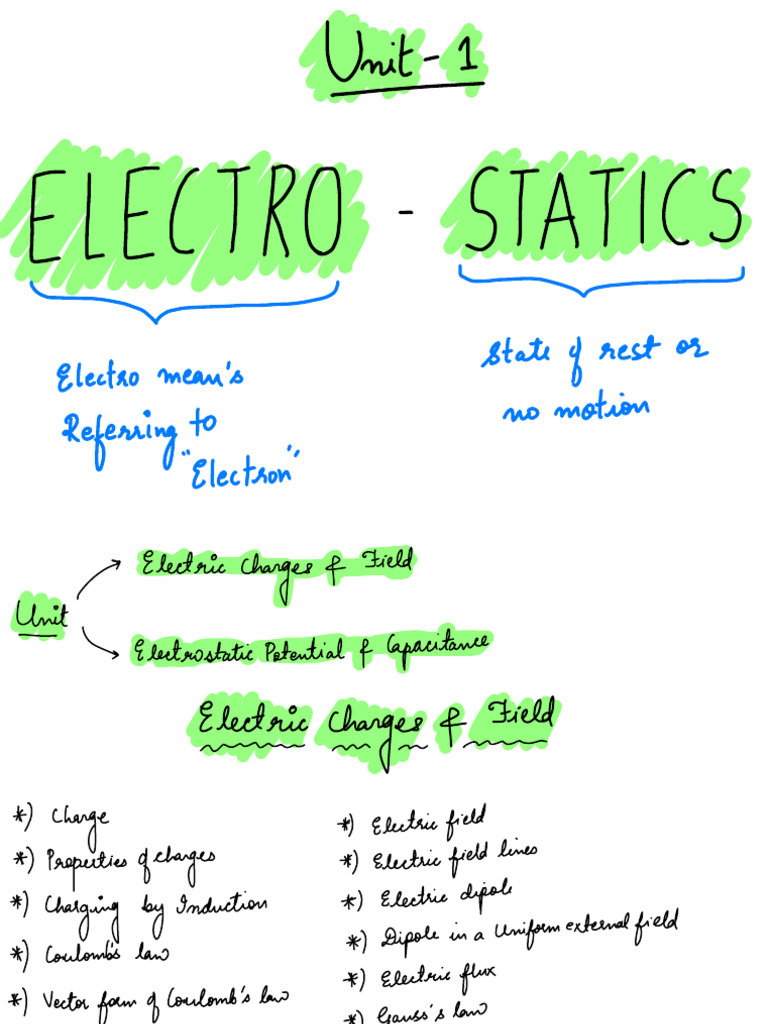 Unit - 1
ELECTRO - STATICS
Electro mean's
Referring to
"Electron"
State of rest or
no motion
Unit
Electric Charges & Field
Electrostatic Potential & Capacitance
Electric Charges & Field
*) Charge
*) Properties of charges
*) Charging by Induction
*) Coulomb's law
*) Vector form of Coulomb's law
*) Electric field
*) Electric field lines
*) Electric dipole
*) Dipole in a Uniform external field
*) Electric flux
*) Gauss's law